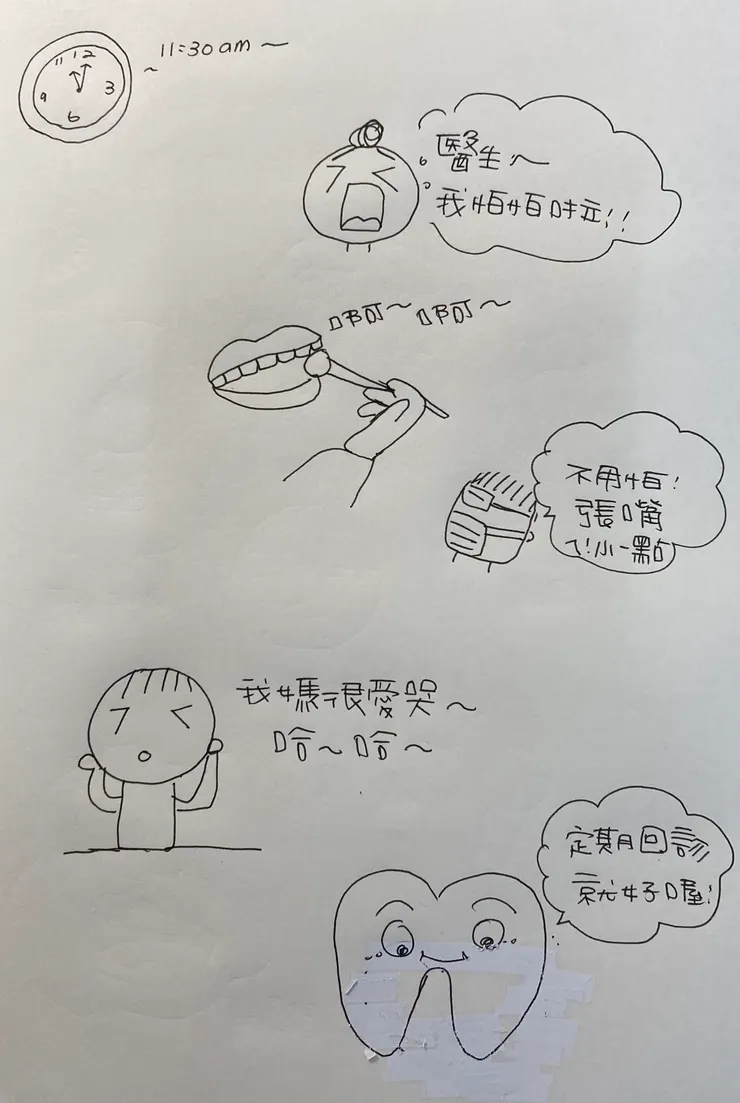 11 12
9 3
6
~11:30am~
醫生!~
我怕怕啦!!
啊~啊~
不用怕!
張嘴
小一點
我媽很愛哭~
哈~哈~
定期回診
就好喔!